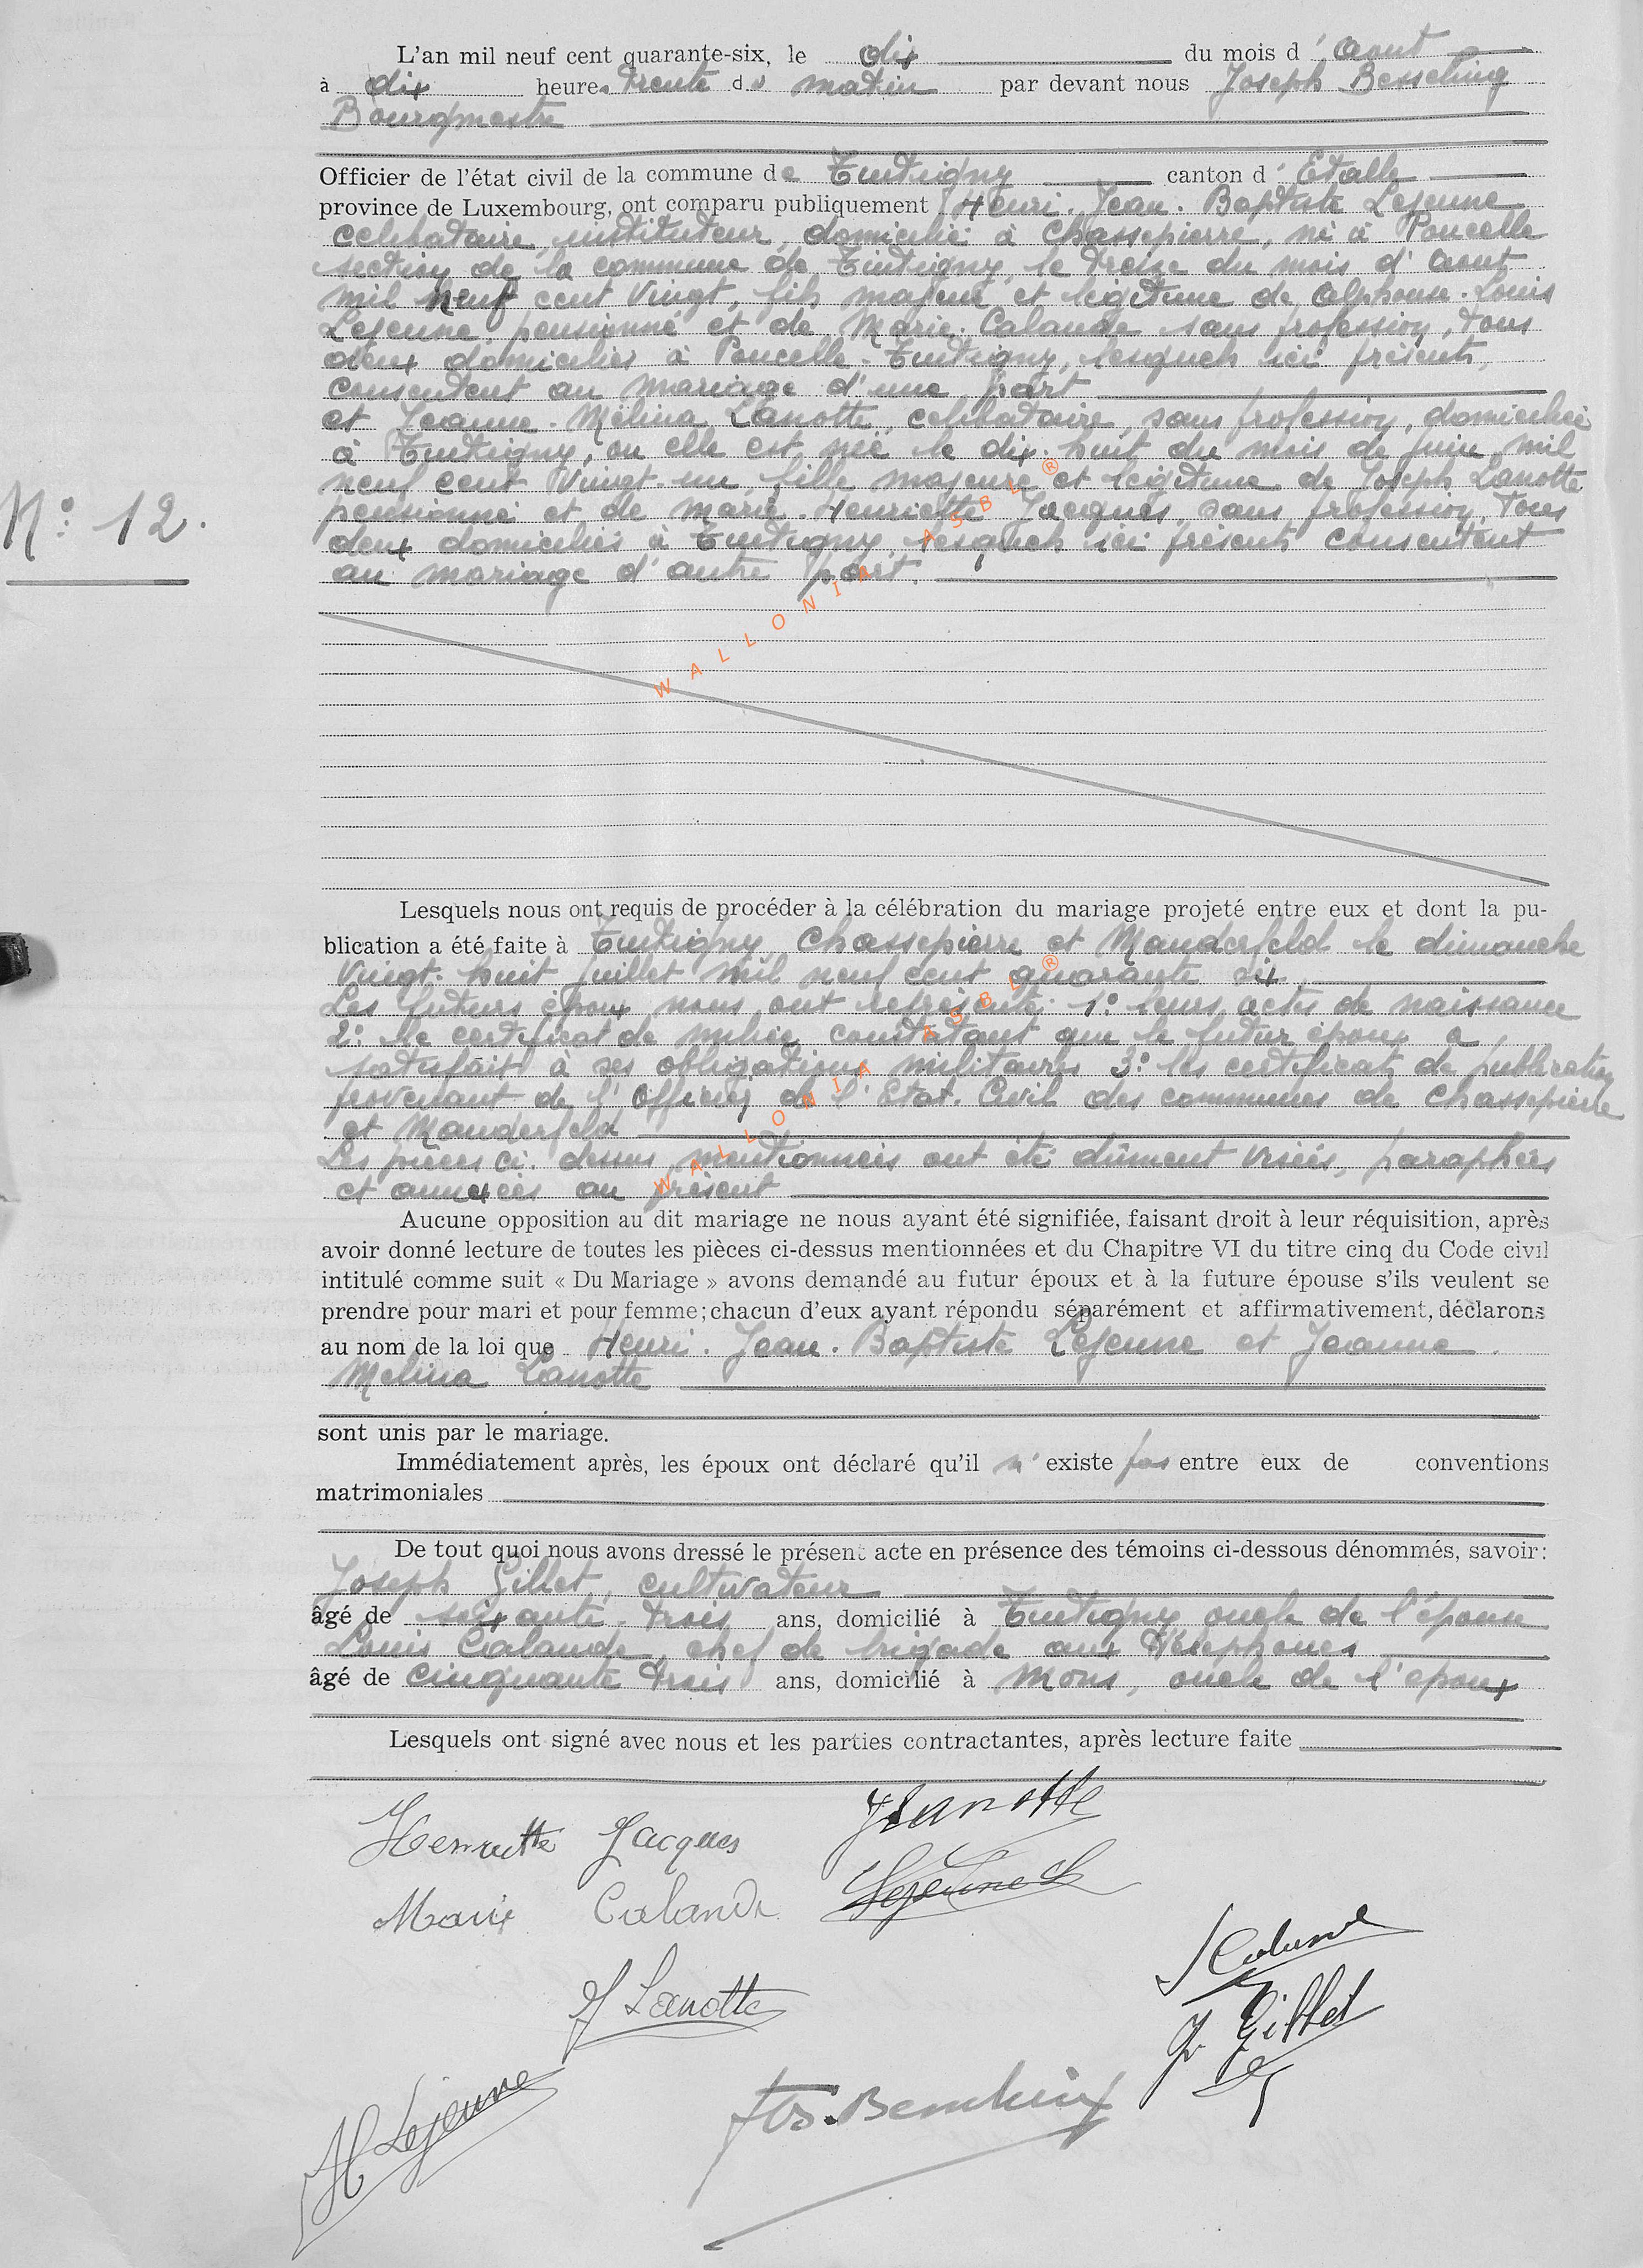 L'an mil neuf cent quarante-six, le dix du mois d'aout
à dix heures trente du matin par devant nous Joseph Bessching
Bourgmestre
Officier de l'état civil de la commune de Tintigny canton d'Etalle
province de Luxembourg, ont comparu publiquement Henri. Jean. Baptiste Lejeune
celibataire, instituteur, domicilié à Chassepierre, né à Poncelle
section de la commune de Tintigny, le treize du mois d'aout
mil neuf cent vingt, fils majeur et légitime de Alphonse. Louis
Lejeune, pensionné et de Marie. Calande sans profession, tous
deux domiciliés à Poncelle-Tintigny, lesquels ici présents,
consentent au mariage d'une part
et Jeanne. Mélina Lanotte, celibataire, sans profession, domiciliée
à Tintigny, ou elle est née le dix-huit du mois de juin mil
N° 12.
neuf cent vingt-un, fille majeure et légitime de Joseph Lanotte
pensionné et de Marie. Henriette Jacques, sans profession, tous
deux domiciliés à Tintigny, lesquels ici présents consentent
au mariage d'autre part.
WALLONIA ASBL ®
Lesquels nous ont requis de procéder à la célébration du mariage projeté entre eux et dont la pu-
blication a été faite à Tintigny Chassepierre et Manderfeld le dimanche
vingt-huit juillet mil neuf cent quarante six.
Les futurs époux nous ont représenté: 1° leurs actes de naissance
2° le certificat de milice constatant que le futur époux a
satisfait à ses obligations militaires 3° les certificats de publication
provenant de l'Officier de l'Etat-Civil des communes de Chassepierre
et Manderfeld
Les pièces ci-dessus mentionnées ont été dûment visées, paraphées
et annexées au présent
WALLONIA ASBL ®
Aucune opposition au dit mariage ne nous ayant été signifiée, faisant droit à leur réquisition, après
avoir donné lecture de toutes les pièces ci-dessus mentionnées et du Chapitre VI du titre cinq du Code civil
intitulé comme suit « Du Mariage » avons demandé au futur époux et à la future épouse s'ils veulent se
prendre pour mari et pour femme; chacun d'eux ayant répondu séparément et affirmativement, déclarons
au nom de la loi que Henri. Jean. Baptiste Lejeune et Jeanne.
Melina Lanotte
sont unis par le mariage.
Immédiatement après, les époux ont déclaré qu'il n'existe pas entre eux de conventions
matrimoniales
De tout quoi nous avons dressé le présent acte en présence des témoins ci-dessous dénommés, savoir:
Joseph Gillet, cultivateur
âgé de soixante-trois ans, domicilié à Tintigny oncle de l'épouse
Louis Calande, chef de brigade aux téléphones
âgé de cinquante trois ans, domicilié à Mons, oncle de l'époux
Lesquels ont signé avec nous et les parties contractantes, après lecture faite
Henriette Jacques JLanotte
Marie Calande Lejeune
Calande
J Lanotte
J. Gillet
H Lejeune